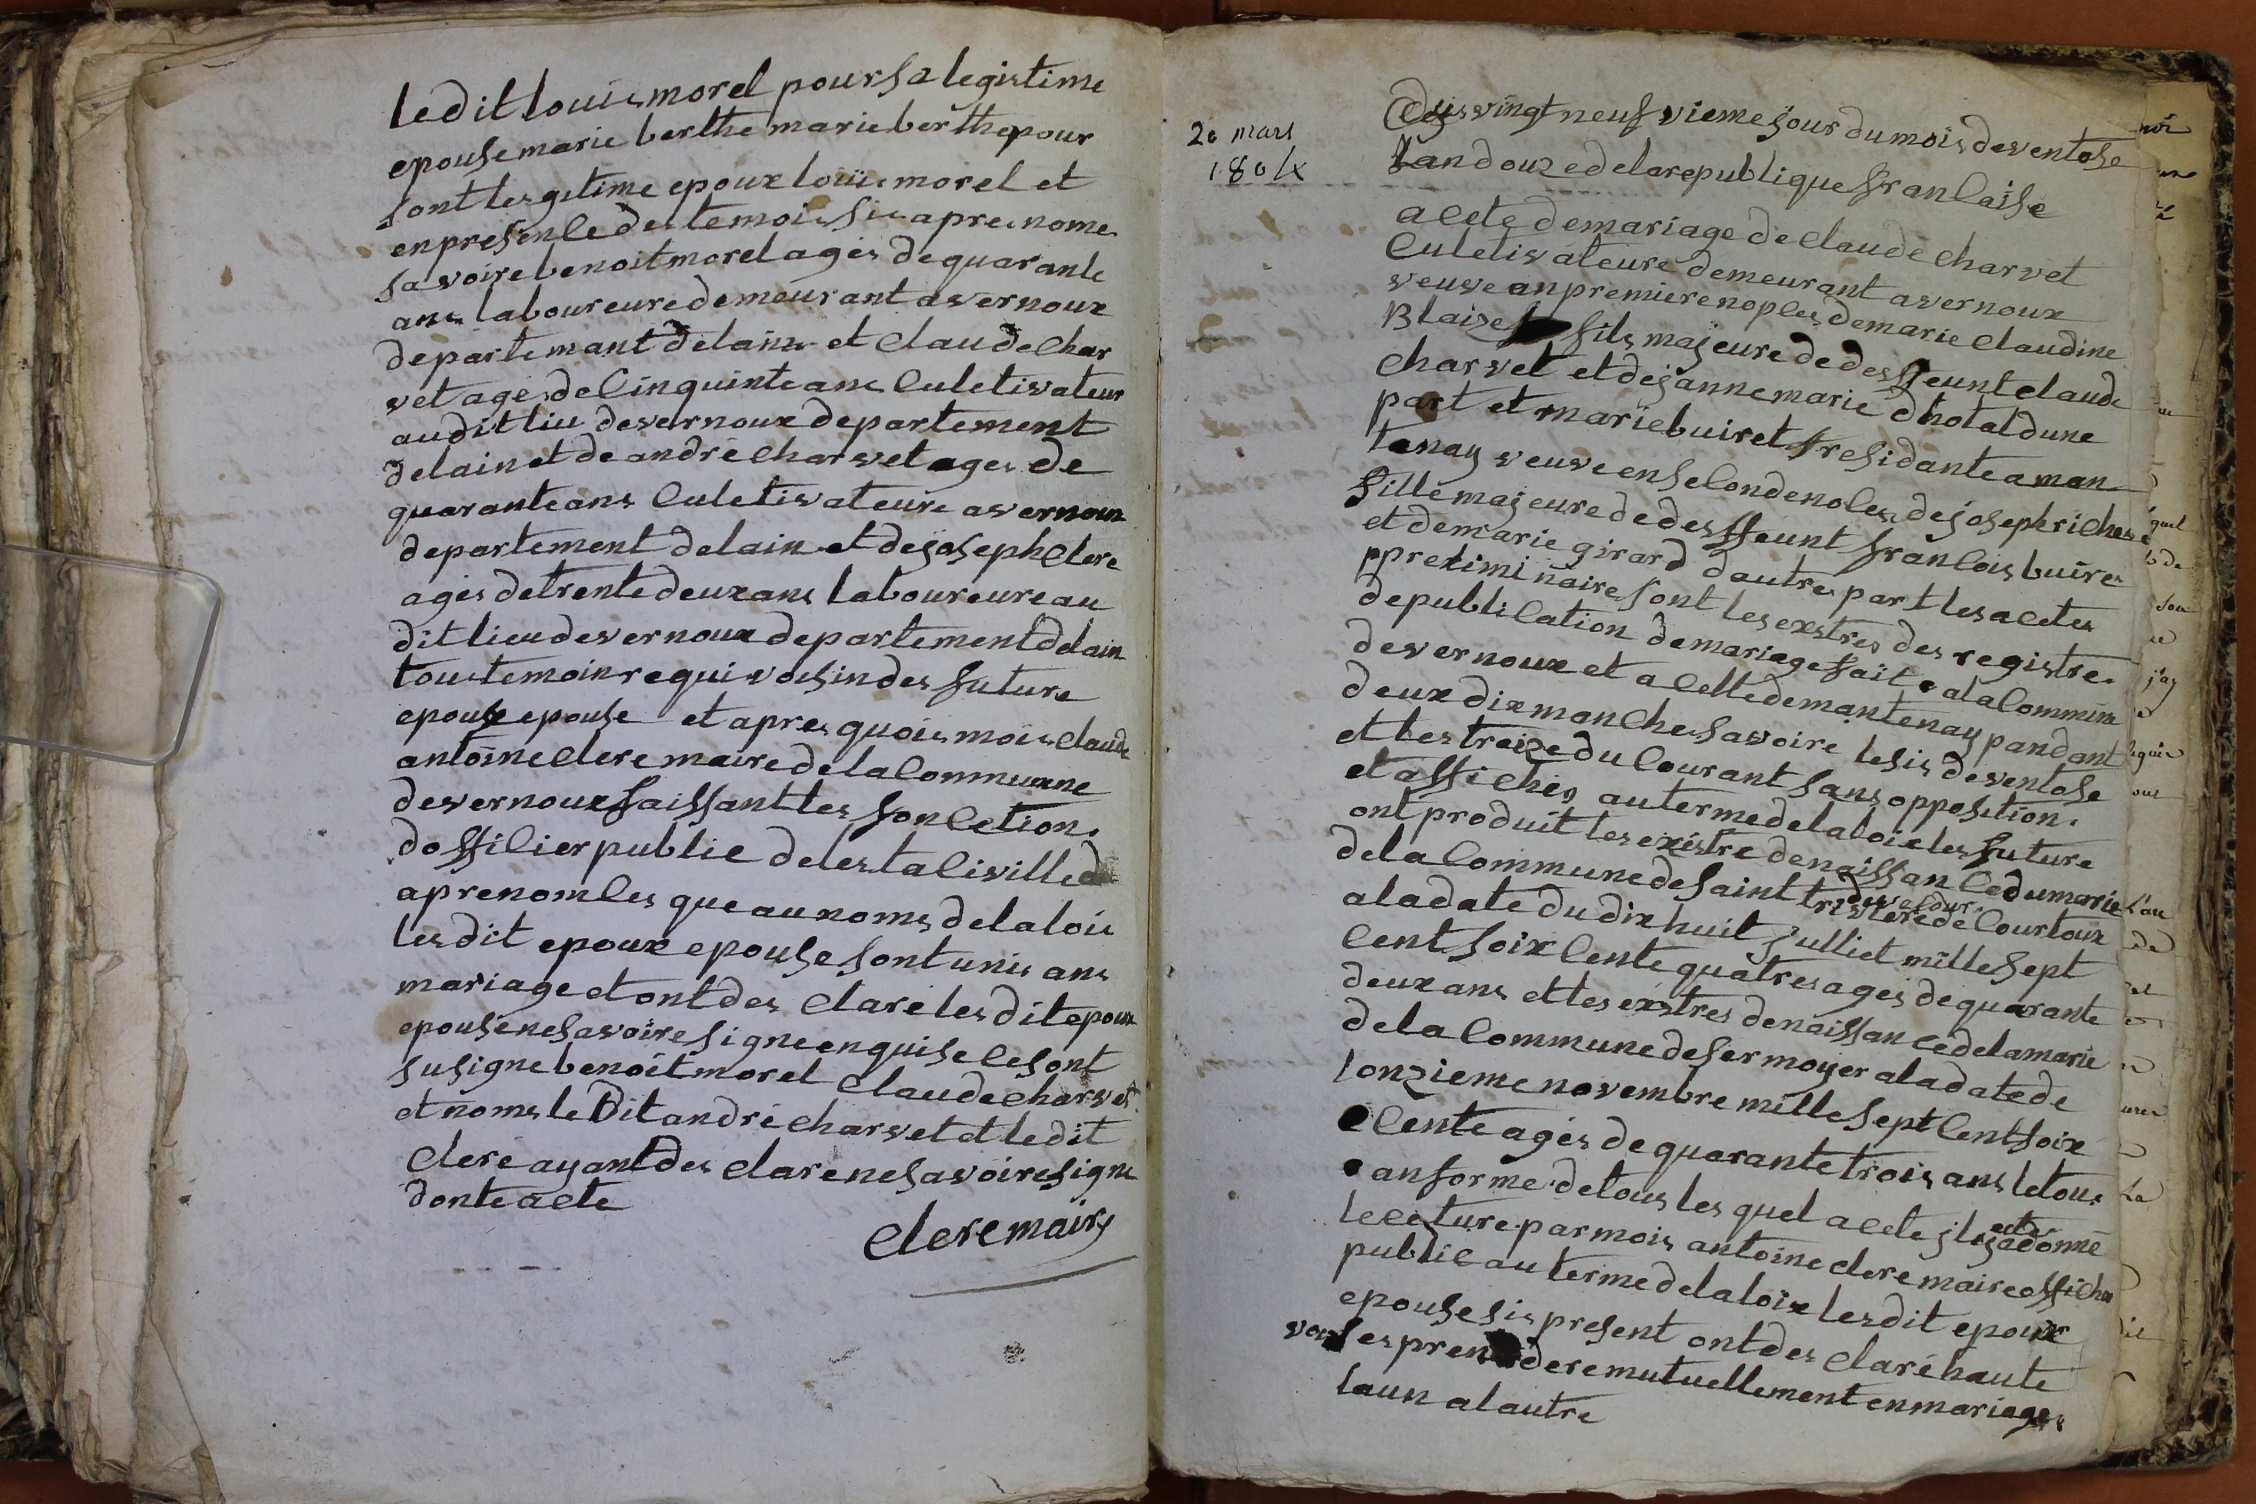 le dit louis morel pour sa legistime
epouse marie berthe marie berthe pour
sont legitime epoux loüis morel et
en presence des temois sis apres nome
savoire benoit morel ages de quarante
ans laboureure demeurant a vernoux
departemant de lain et Claude Char
vet age de Cinquinte ans Culetivateur
audit liu de vernoux departement
de lain et de andré Charvet ages de
quarante ans Culetivateure a vernoux
departement de lain et de joseph Clere
agés de trente deux ans laboureure au
dit lieu de vernoux departement de lain
tous temoin requi voisin des future
epouse epouse et apres quois mois Claude
antoine Clere maire de la Commune
de vernoux faissant les fonCetion
dofficier public de lesta Civille
apre nomles que au noms de la lois
les dit epoux epouse sont unis ans
mariage et ont des Claré les dit epoux
epouse ne savoire signe en quise le sont
susigne benoit morel Claude Charvet
et noms le Dit andré Charvet et le dit
Clere ayant des Clare ne savoire signe
donte acte
Clere maire
20 mars
1804
Dus vingt neuf vieme jour du mois de ventose
Lan douze de la republique franCaise
aCete de mariage de Claude Charvet
Culetivateure demeurant a vernoux
veuve an premiere nopces de marie Claudine
Blaize fils majeure de deffeunt Claude
Charvet et de jannemarie dhotal dune
part et marie buiret residante a man
tenay veuve en seConde noces de joseph riche
fille majeure de deffeunt franCois buiret
et de marie girard dautre part les aCetes
ppreliminaire sont les exstres des registre
de publiCation de mariage fait a la Commune
de vernoux et a Cette de mantenay pandant
deux dixmanche savoire le sis de ventose
et les treize du Courant sans opposition
et affiches au terme de la lois les future
ont produit les existre de naissance du marie
de la Commune de Saint tristere de Courtoux
a la date du dix huit julliet mille sept
Cent soixCente quatres ages de quarante
deux ans et les exstres de naissance de la marie
de la Commune de sermoyer a la date de
lonzieme novembre mille sept Cent soix
Cente agés de quarante trois ans le tous
an forme de tous les quel acete il a ete donné
leCeture par mois antoine Clere maire officier
public au terme de la loix les dit epoux
epouse sis present ont des Claré haute
vois ses prendere mutuellement en mariage
laun a lautre